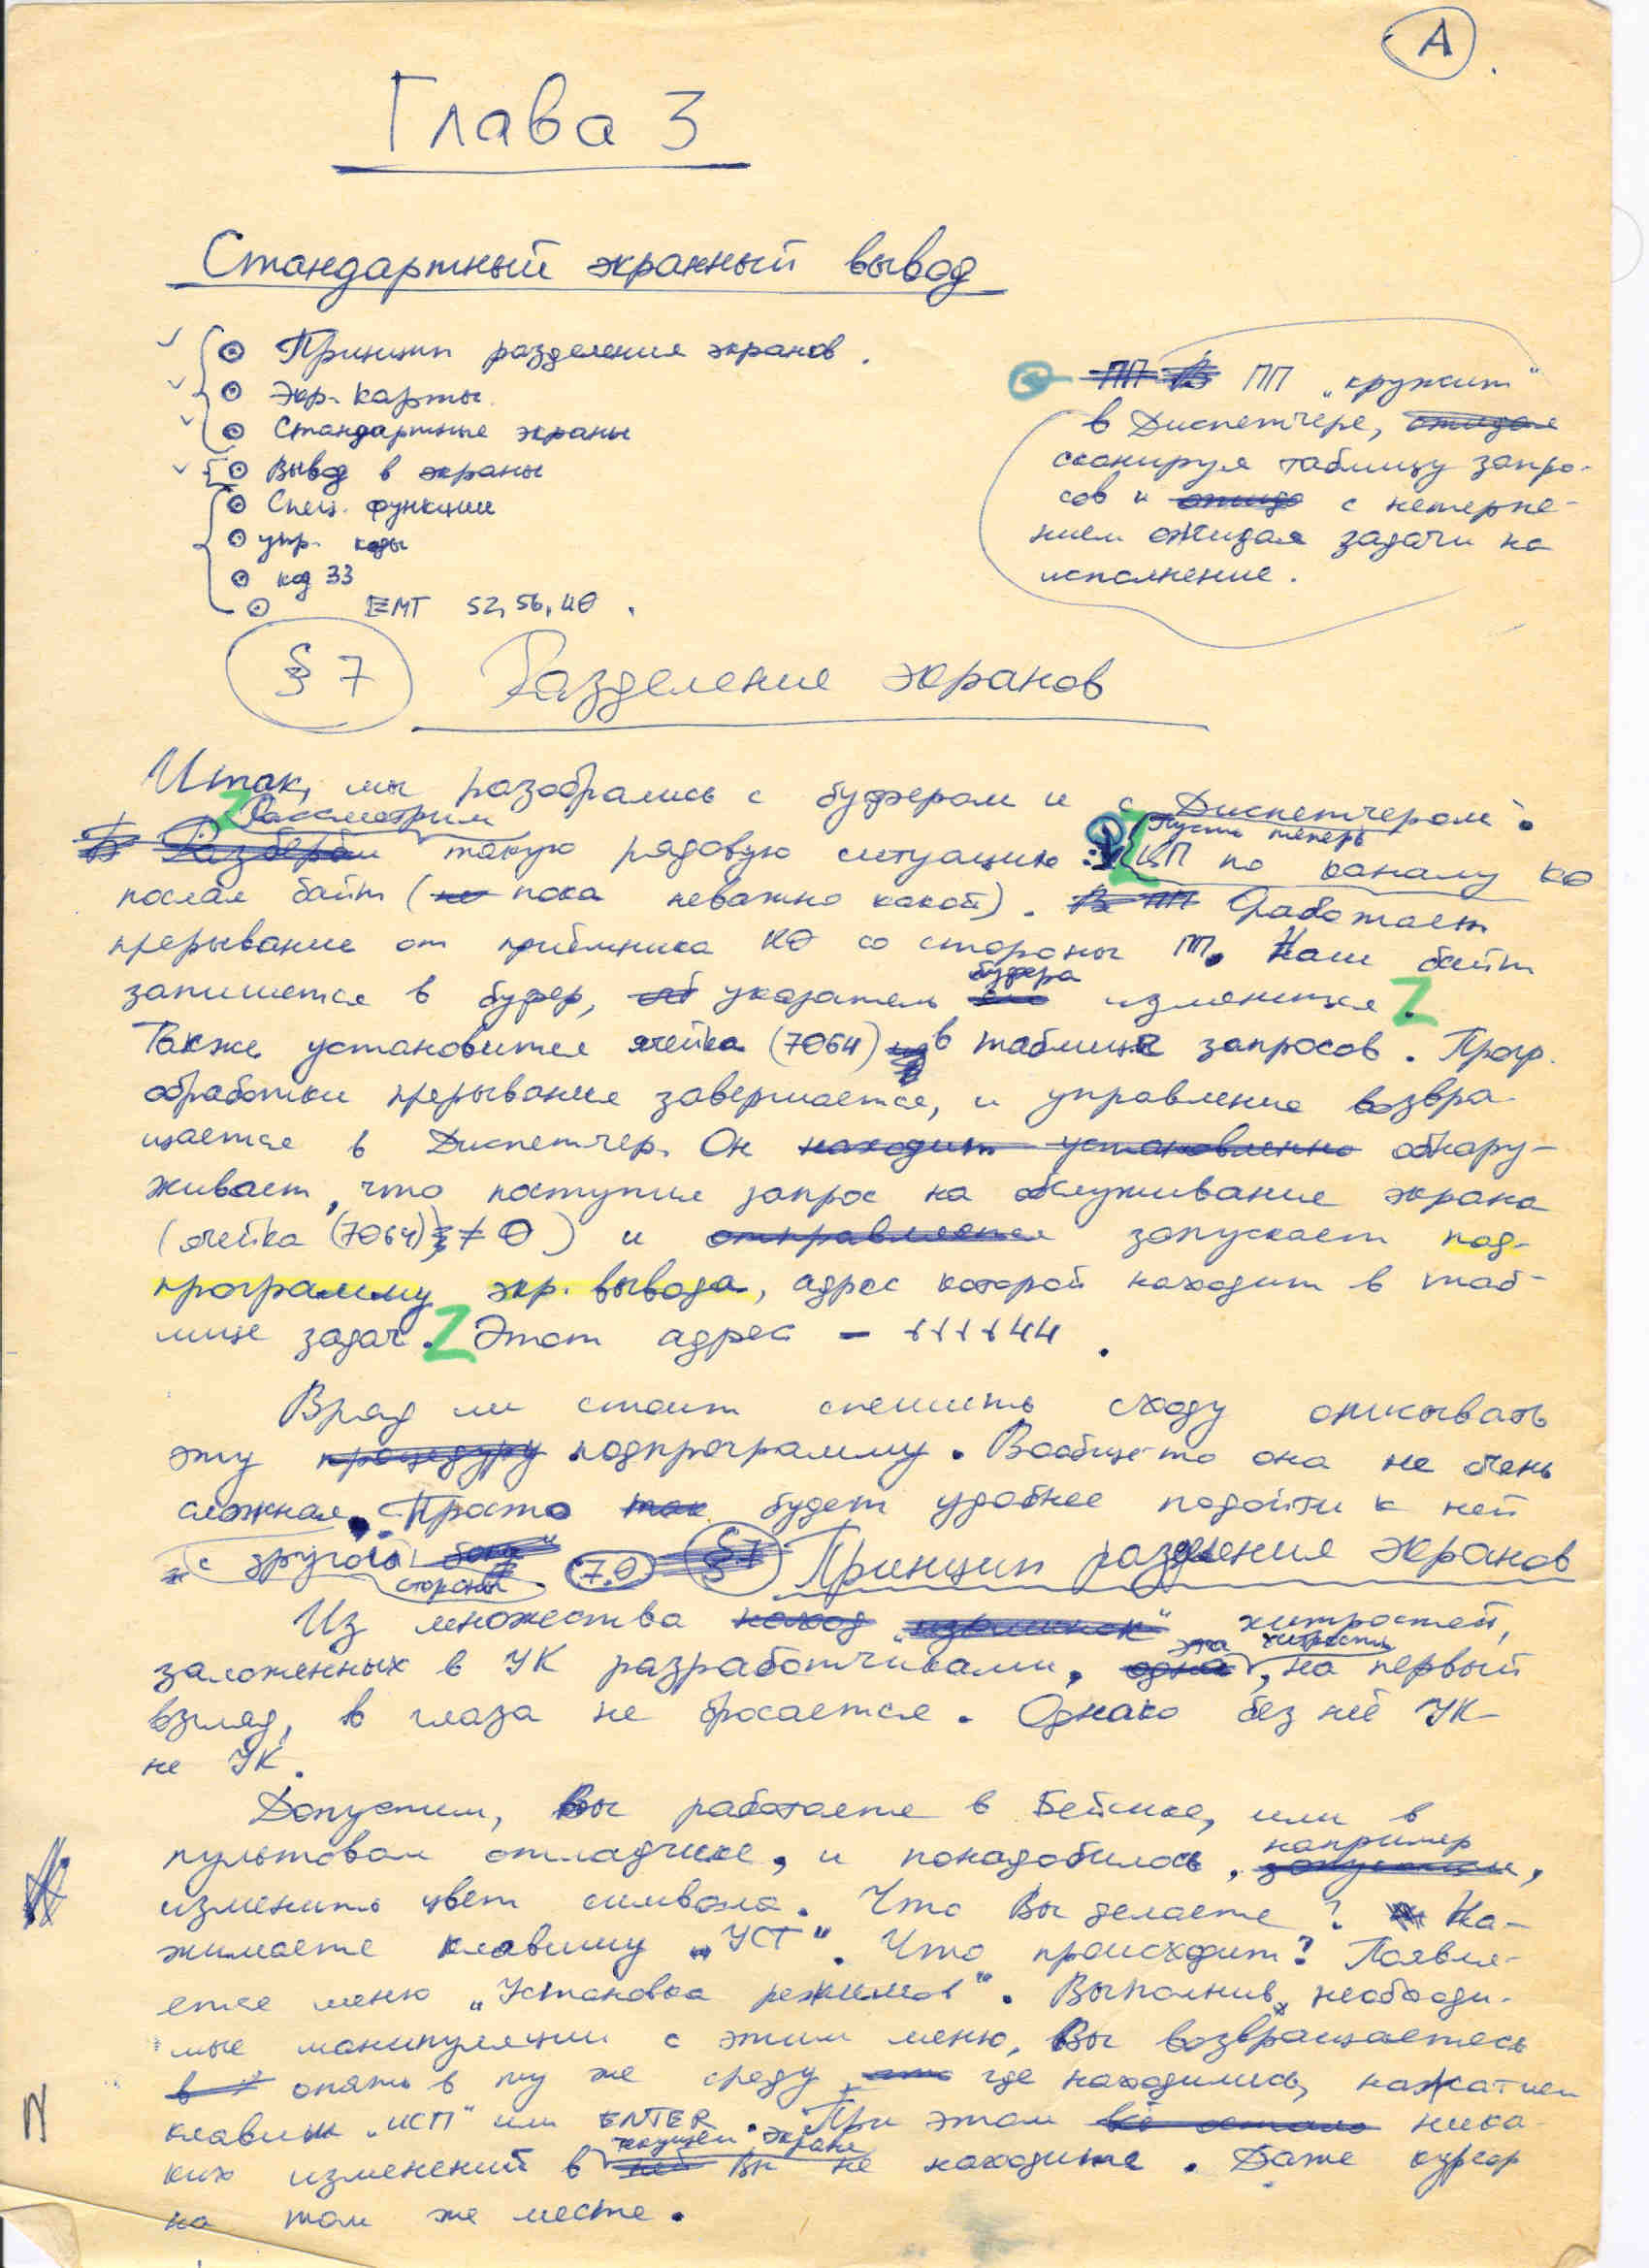 А
Глава 3
Стандартный экранный вывод
Принцип разделения экранов.
Экр. карты
Стандартные экраны
Вывод в экраны
Спец. функции
упр. коды
код 33
EMT 52, 56,
ПП „кружит“
в Диспетчере,
сканируя таблицу запро-
сов и с нетерпе-
нием ожидая задачи на
исполнение.
§ 7 Разделение экранов
Итак, мы разобрались с буфером и с Диспетчером.
Рассмотрим такую рядовую ситуацию: Пусть теперь ЦП по каналу К0
послал байт (пока неважно какой). Сработает
прерывание от приёмника К0 со стороны ПП. Наш байт
запишется в буфер, указатель буфера изменится.
Также установится ячейка (7064) в таблице запросов. Прогр.
обработки прерывания завершается, и управление возвра-
щается в Диспетчер. Он находит установленно обнару-
живает, что поступил запрос на обслуживание экрана
(ячейка (7064) ≠ 0) и отправляется запускает под-
программу экр. вывода, адрес которой находит в таб-
лице задач. Этот адрес – 111144.
Вряд ли стоит спешить сходу описывать
эту процедуру подпрограмму. Вообще-то она не очень
сложная. Просто так будет удобнее подойти к ней
с другой стороны. 7.0 §7 Принцип разделения экранов
Из множества хитростей,
заложенных в УК разработчиками, эта хитрость, на первый
взгляд, в глаза не бросается. Однако без неё УК –
не УК.
Допустим, Вы работаете в Бейсике, или в
пультовом отладчике, и понадобилось, например,
изменить цвет символа. Что Вы делаете? На-
жимаете клавишу „УСТ“. Что происходит? Появля-
ется меню „Установка режимов“. Выполнив необходи-
мые манипуляции с этим меню, Вы возвращаетесь
опять в ту же среду, где находились, нажатием
клавиш „ИСП“ или ENTER. При этом ника-
ких изменений в текущем экране Вы не находите. Даже курсор
на том же месте.